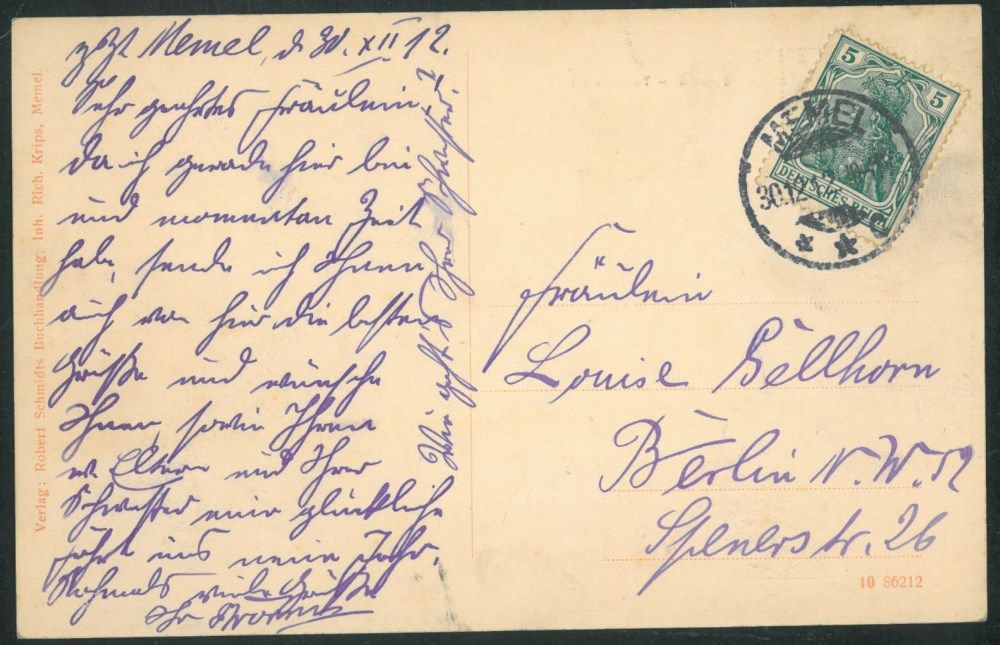 z. Zt. Memel, d. 30. XII 12.
Sehr geehrtes Fräulein,
da ich gerade hier bei
und momentan Zeit
habe, sende ich Ihnen
auch von hier die besten
Grüße und wünsche
Ihnen, sowie Ihren
w. Eltern und Ihrer
Schwester eine glückliche
Fahrt ins neue Jahr.
Nochmals viele Grüße
Ihr
Wie geht's Ihrer Schwester?
Fräulein
Louise Gellhorn
Berlin N.W. 52
Spenerstr. 26
5 5
DEUTSCHES REICH
MEMEL
30.12
* *
Verlag: Robert Schmidts Buchhandlung, Inh. Rich. Krips, Memel.
10 86212